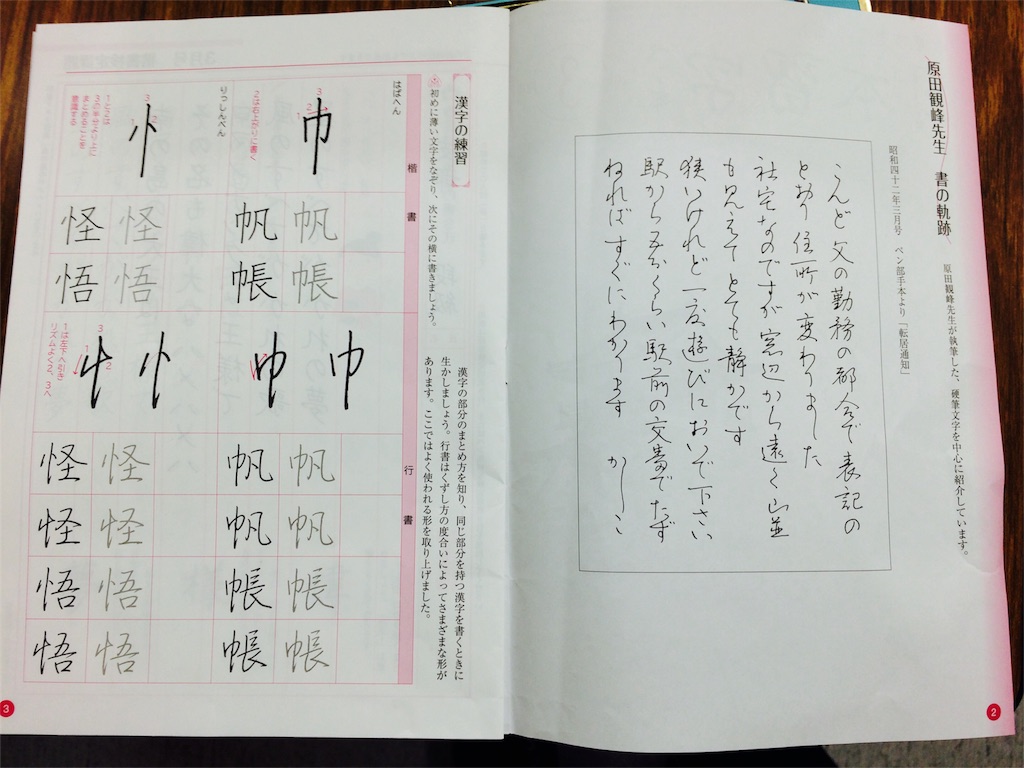 原田観峰先生 書の軌跡
原田観峰先生が執筆した、硬筆文字を中心に紹介しています。
昭和四十二年三月号 ペン部手本より「転居通知」
こんど父の勤務の都合で表記の
とおり住所が変わりました
社宅なのですが窓辺から遠く山並
も見えてとても静かです
狭いけれど一度遊びにおいで下さい
駅から五分くらい駅前の交番でたず
ねればすぐにわかります かしこ
2
漢字の練習
初めに薄い文字をなぞり、次にその横に書きましょう。
漢字の部分のまとめ方を知り、同じ部分を持つ漢字を書くときに
生かしましょう。行書はくずし方の度合いによってさまざまな形が
あります。ここではよく使われる形を取り上げました。
楷書
行書
はばへん
巾
1
2
3
2は右上がりに書く
帆 帆
帳 帳
巾 巾
帆 帆
帆 帆
帳 帳
帳 帳
りっしんべん
忄
1
2
3
1と2は
3の半分より上に
まとめることを
意識する
怪 怪
悟 悟
忄 忄
1
2
3
1は左下へ引き
リズムよく2、3へ
怪 怪
怪 怪
悟 悟
悟 悟
3